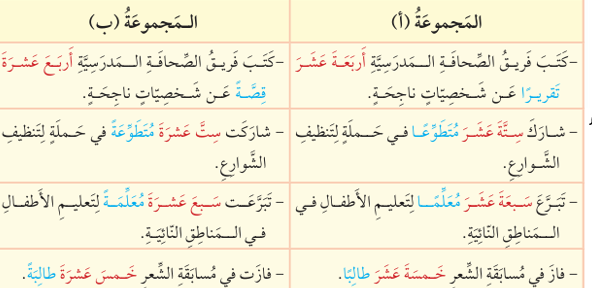 المَجموعَةُ (أ)
–كَتَبَ فَريقُ الصِّحافَةِ الـمَدرَسِيَّةِ أَربَعَةَ عَشَرَ
تَقريرًا عَن شَخصِيّاتٍ ناجِحَةٍ.
– شارَكَ سِتَّةَ عَشَرَ مُتَطَوِّعًا في حَملَةٍ لِتَنظيفِ
الشَّوارِعِ.
– تَبَرَّعَ سَبعَةَ عَشَرَ مُعَلِّمًا لِتَعليمِ الأَطفالِ في
الـمَناطِقِ النّائِيَةِ.
– فازَ في مُسابَقَةِ الشِّعرِ خَمسَةَ عَشَرَ طالِبًا.
الـمَجموعَةُ (ب)
–كَتَبَ فَريقُ الصِّحافَةِ الـمَدرَسِيَّةِ أَربَعَ عَشرَةَ
قِصَّةً عَن شَخصِيّاتٍ ناجِحَةٍ.
– شارَكَت سِتَّ عَشرَةَ مُتَطَوِّعَةً في حَملَةٍ لِتَنظيفِ
الشَّوارِعِ.
– تَبَرَّعَت سَبعَ عَشرَةَ مُعَلِّمَةً لِتَعليمِ الأَطفالِ
في الـمَناطِقِ النّائِيَةِ.
– فازَت في مُسابَقَةِ الشِّعرِ خَمسَ عَشرَةَ طالِبَةً.